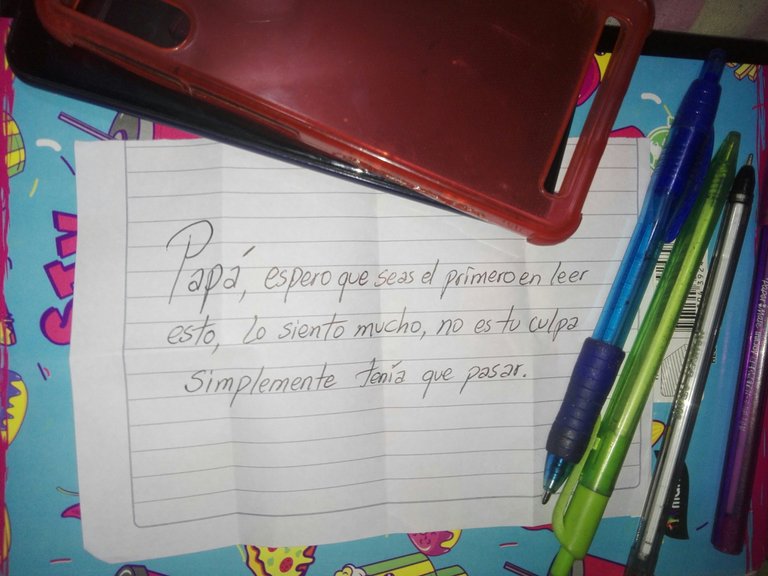 Papá, espero que seas el primero en leer
esto, Lo siento mucho, no es tu culpa
simplemente tenía que pasar.